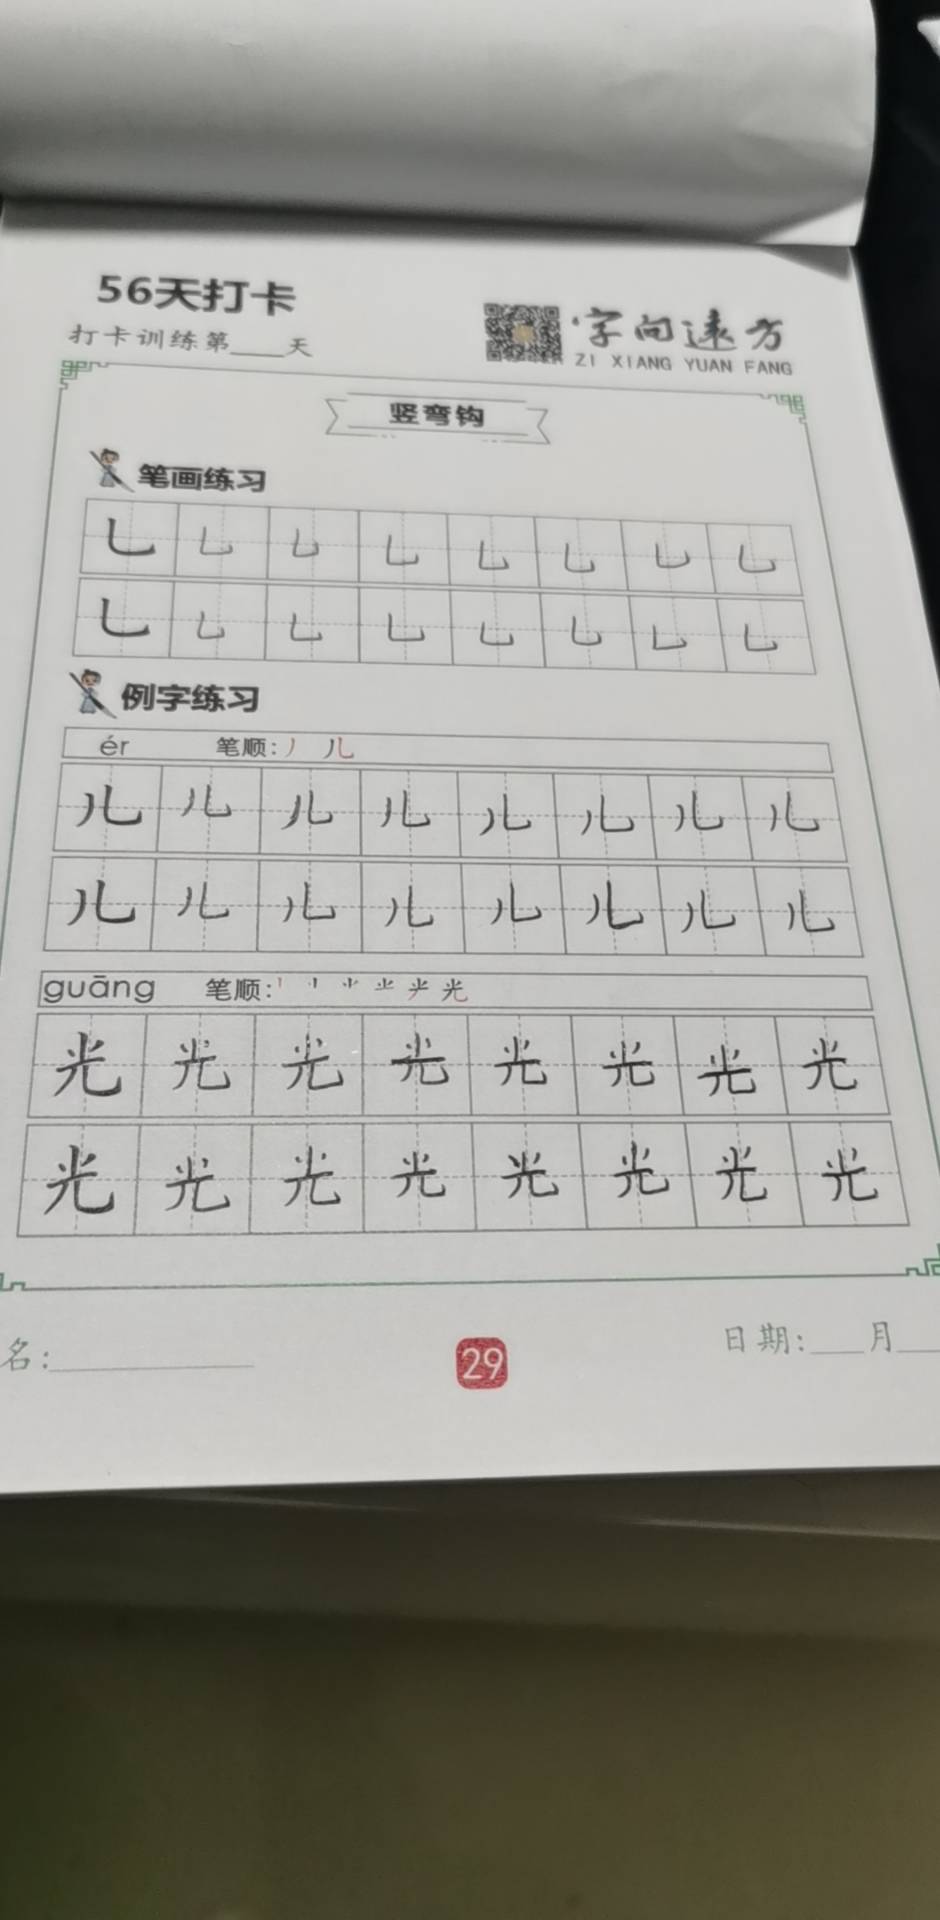 56天打卡
打卡训练第____天
字向远方
ZI XIANG YUAN FANG
竖弯钩
笔画练习
乚 乚 乚 乚 乚 乚 乚 乚
乚 乚 乚 乚 乚 乚 乚 乚
例字练习
ér 笔顺: 丿 儿
儿 儿 儿 儿 儿 儿 儿 儿
儿 儿 儿 儿 儿 儿 儿 儿
guāng 笔顺: 光
光 光 光 光 光 光 光 光
光 光 光 光 光 光 光 光
名:____
29
日期:____月____